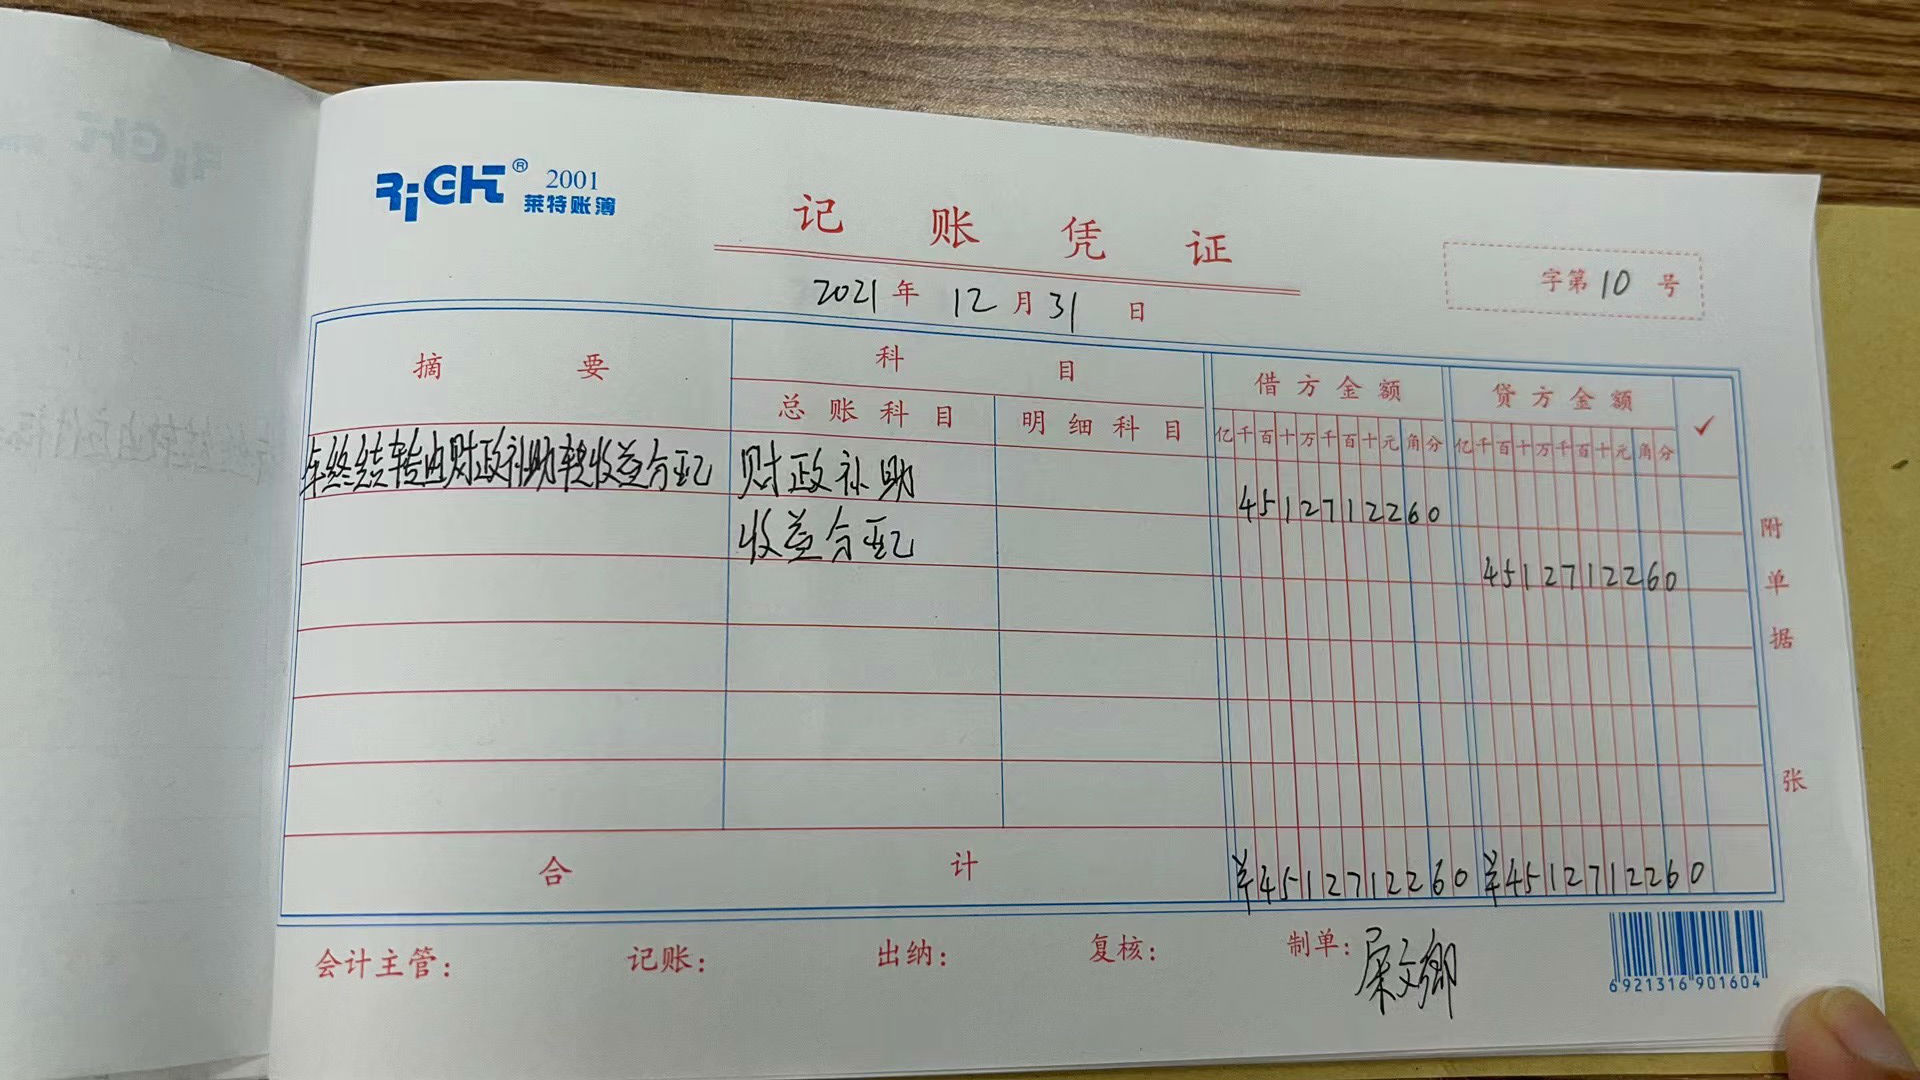 RiGHT® 2001
莱特账簿
记账凭证
2021年12月31日
字第10号
摘要 科目 借方金额 贷方金额 ✓
总账科目 明细科目 亿千百十万千百十元角分 亿千百十万千百十元角分
年终结转由财政补助转收益分配 财政补助 4512712260
收益分配 4512712260
合计 ¥4512712260 ¥4512712260
附单据 张
会计主管: 记账: 出纳: 复核: 制单:
6921316901604